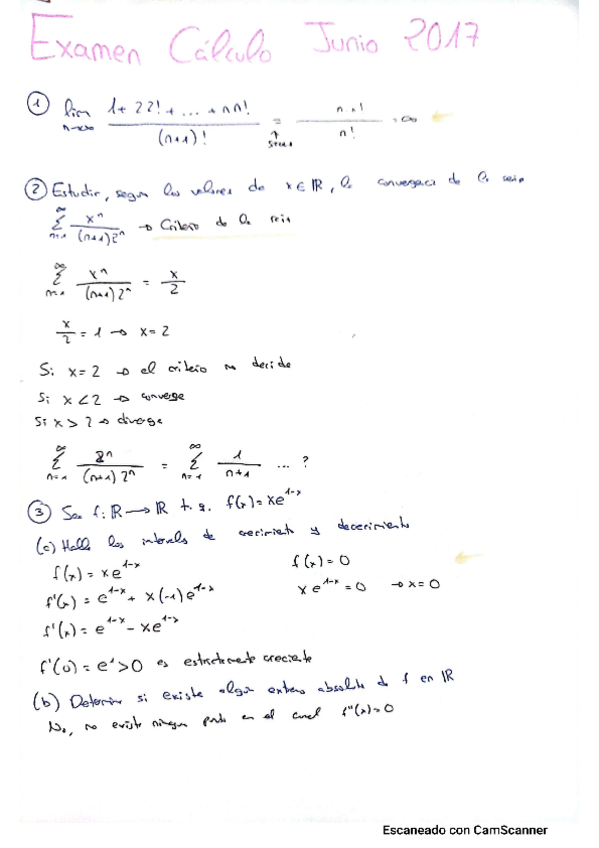 Examen Cálculo Junio 2017
① lim n→∞ (1+22!+...+nn!)/((n+1)!) = n·n!/n! = ∞
② Estudiar, segun los valores de x∈ℝ, la convergencia de la serie
∞ Σ n=1 x^n/((n+1)2^n) → Criterio de la
∞ Σ n=1 x^n/((n+1)2^n) = x/2
x/2 = 1 → x=2
Si x=2 → el criterio no decide
Si x<2 → converge
Si x>2 → diverge
∞ Σ n=1 2^n/((n+1)2^n) = ∞ Σ n=1 1/(n+1) ...?
③ Sea f:ℝ→ℝ t.q. f(x)=xe^{1-x}
(a) Halla los intervalos de crecimiento y decrecimiento
f(x)=xe^{1-x} f(x)=0
f'(x)=e^{1-x}+x(-1)e^{1-x} xe^{1-x}=0 → x=0
f'(x)=e^{1-x}-xe^{1-x}
f'(0)=e^1>0 es estrictamente creciente
(b) Determinar si existe algún extremo absoluto de f en ℝ
No, no existe ningun punto en el cual f''(x)=0
Escaneado con CamScanner